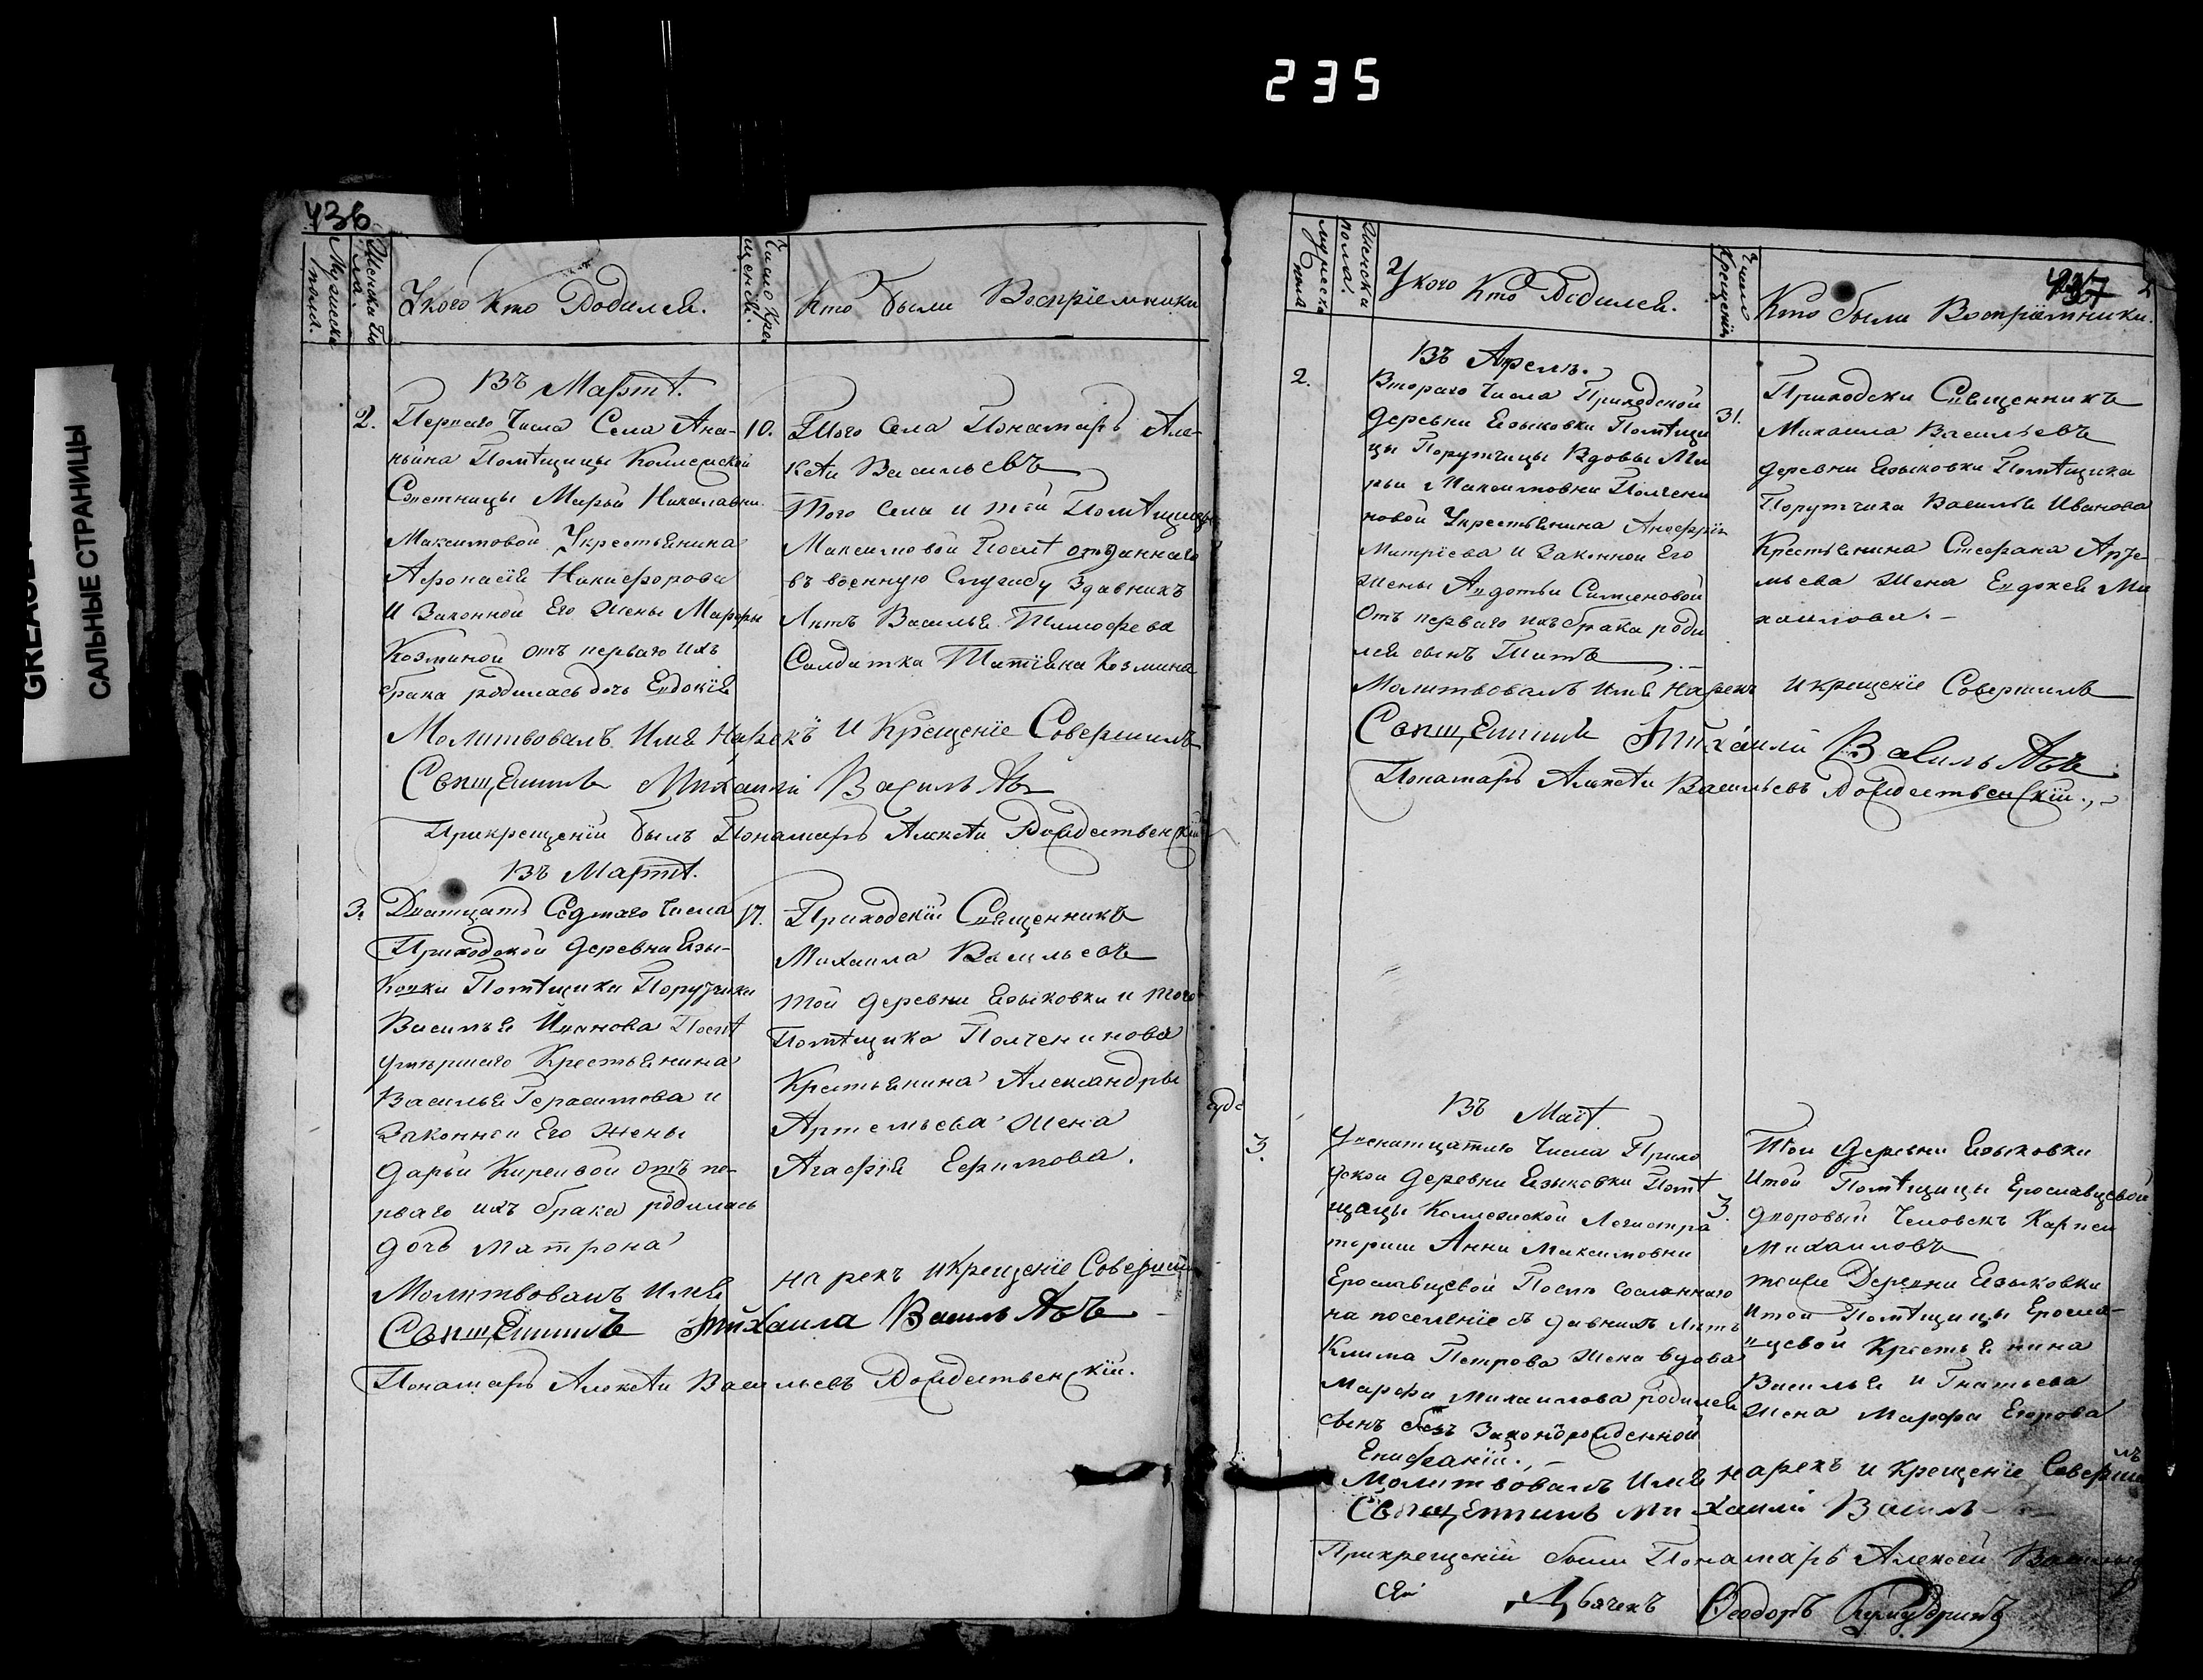 235
GREASE
САЛЬНЫЕ СТРАНИЦЫ
436
Мужеска пола.
Женска по ла.
Укого кто Родился.
Число Кре щенiя.
Кто были Воспрiемники
Въ Мартѣ.
2. Перваго Числа Села Ана-
ньина Помѣщицы Коллежской
Советницы Марьи Николавны
Максимовой Укрестьянина
Афонасiя Никифорова
И Законной Его жены Марфы
Козминой отъ перваго ихъ
брака родилась дочь Евдокiя
10. Того Села Понамарь Але-
ксѣи Васильевъ
Того Села и той Помѣщицы
Максимовой Послѣ отданнаго
въ военную Службу Здавнихъ
Лѣтъ Василья Тимофеева
Солдатка Татiяна Козмина
Молитвовалъ Имя Нарекъ И Крещенiе Совершилъ
Священникъ Михаилъ Васильѣвъ
Прикрещенiи былъ Понамарь Алексѣи Рождественскiй
Въ Мартѣ.
3. Дватцать Седмаго Числа
Приходской деревни Язы-
ковки Помѣщика Поручика
Василья Иванова Послѣ
умершаго Крестьянина
Василья Герасимова и
Законной Его жены
Дарьи Киреивой отъ пе-
рваго ихъ брака родилась
дочь Матрона
17. Приходскiй Священникъ
Михаила Васильевъ
Той деревни Языковки и того
Помѣщика Полченинова
Крестьянина Александры
Артемьева Жена
Агафiя Ефимова.
Молитвовалъ Имя нарекъ икрещенiе Совершилъ
Священникъ Михаила Васильѣвъ
Понамарь Алексѣи Васильевъ Рождественскiй.
437
мужеска пола
Женска пола.
Укого Кто Родился.
Число Крещенiя
Кто были Воспрiемники.
Въ Апреле.
2. Втораго Числа Приходской
деревни Языковки Помѣщи
цы Порутчицы Вдовы Ма
рьи Максимовны Полчени
новой Укрестьянина
Митрiева и Законной Его
жены Авдотьи Симеоновой
Отъ перваго ихъ брака роди
лся сынъ Титъ
31. Приходски Священникъ
Михаила Васильевъ
деревни Языковки Помѣщика
Порутчика Василья Иванова
Крестьянина Стефана Арте-
мьева жена Евдокея Ми
хаилова.
Молитвовалъ Имя Нарекъ икрещенiе Совершилъ
Священникъ Михаилъ Васильѣвъ
Понамарь Алексѣи Васильевъ Рождественскiй.
Въ Маiѣ.
3. Числа Прихо
дской деревни Языковки Помѣ
щицы Коллежской Легистра
торши Анны Максимовны
Ерославцевой Послѣ сосланнаго
на поселенiе съ давнихъ лѣтъ
Клима Петрова жена вдова
Марфа Михаилова родился
сынъ безъ Законорожденной
Епифанiй.
3. Той деревни Языковки
Итой Помѣщицы Ерославцевой
дворовый Человекъ Карпеи
Михаиловъ
тойже Деревни Языковки
итой Помѣщицы Еросла-
вцевой Крестьянина
Василья Игнатьева
Жена Марфа Егорова
Молитвовалъ Имя нарекъ и Крещенiе Совершилъ
Священникъ Михаилъ Васильѣвъ
Прикрещенiй были Понамарь Алексѣй
Дьячекъ Феодоръ